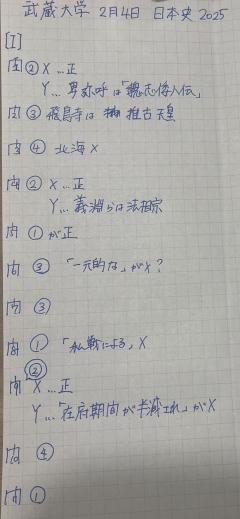 武蔵大学 2月4日 日本史 2025
[I]
問1 ② X…正
Y…卑弥呼は「魏志倭人伝」
問2 ③ 飛鳥寺は 推古天皇
問3 ④ 北海 X
問4 ② X…正
Y…義淵らは法相宗
問5 ① が正
問6 ③ 「一元的な」がX?
問7 ③
問8 ① 「私戦による」X
問9 ② X…正
Y…「在府期間が半減され」がX
問10 ④
問11 ①